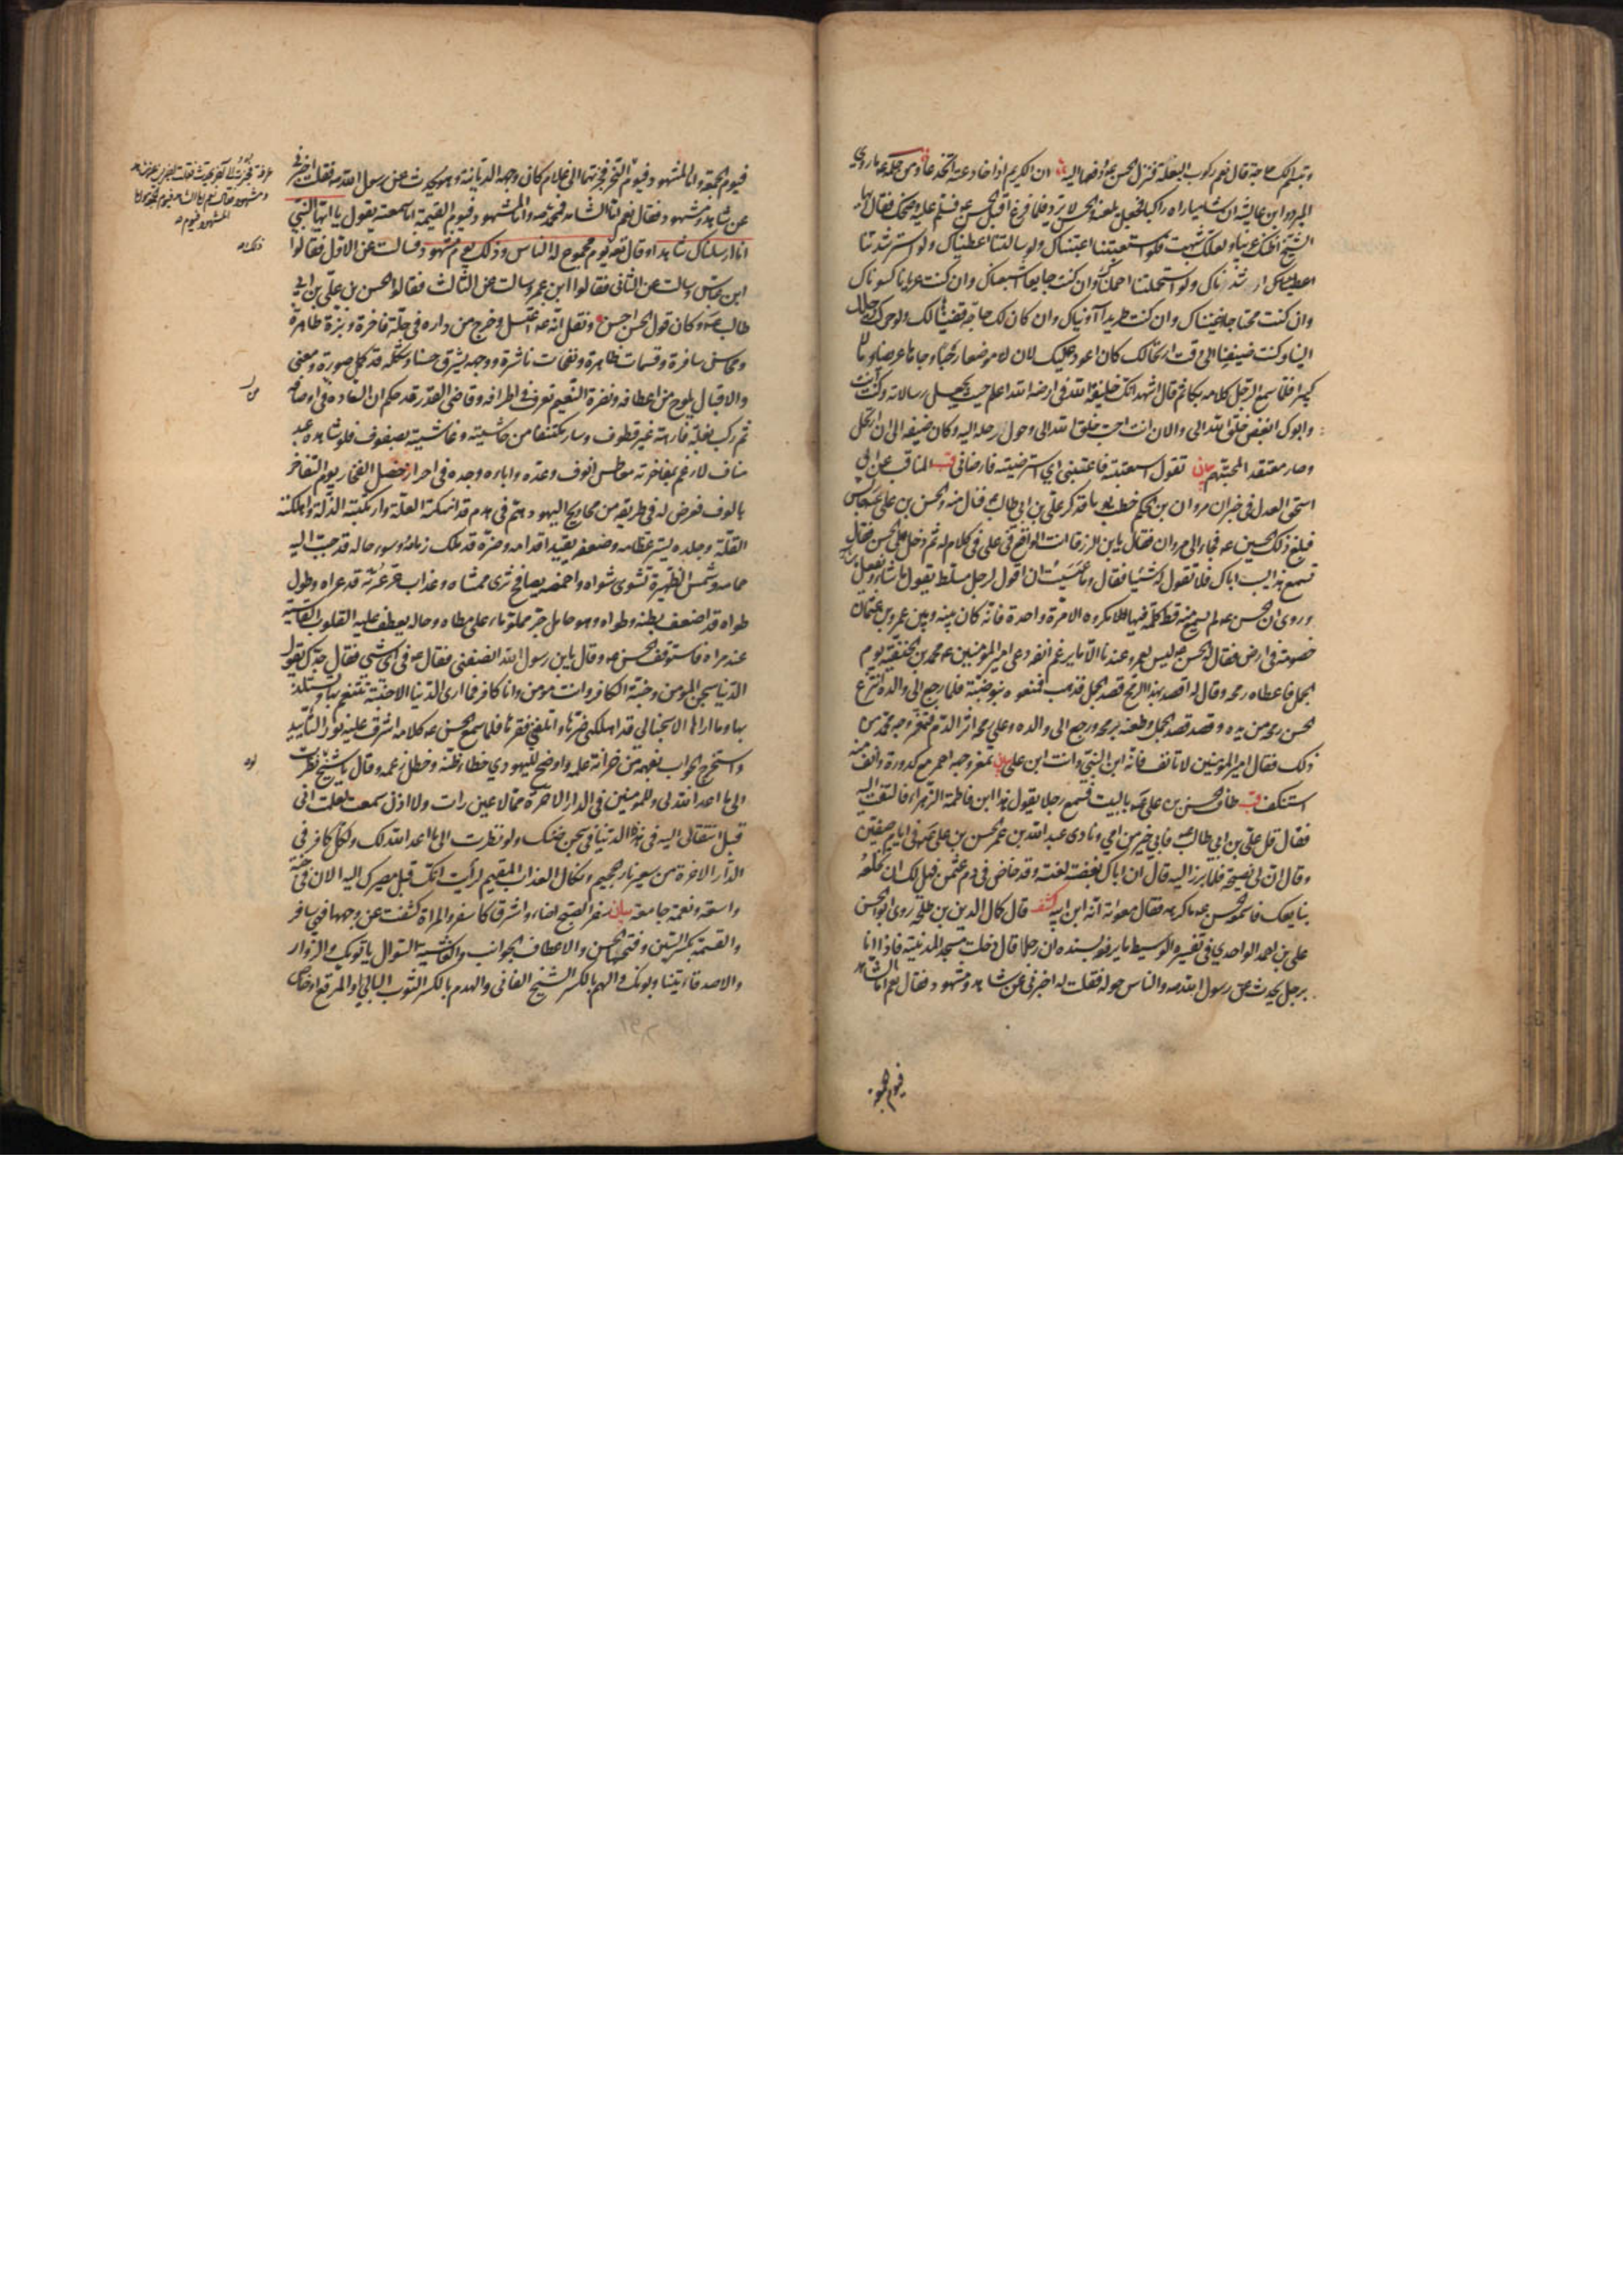 وتبسم الك حاجة قال نعم ركوب البغلة فنزل الحسن ع ودفعها اليه ان الكريم اذا خادعته انخدعا ومن حلمه ع ما روى
المبرد وابن عايشة ان شاميا راه راكبا فجعل يلعنه والحسن لا يرد فلما فرغ اقبل الحسن ع فسلم عليه وضحك فقال ايها
الشيخ اظنك غريبا ولعلك شبهت فلو استعتبتنا اعتبناك ولو سالتنا اعطيناك ولو استرشدتنا
ارشدناك ولو استحملتنا احملناك وان كنت جايعا اشبعناك وان كنت عريانا كسوناك
وان كنت محتاجا اغنيناك وان كنت طريدا آويناك وان كان لك حاجة قضيناها لك ولو حركت رحلك
الينا وكنت ضيفنا الى وقت ارتحالك كان اعود عليك لان لنا موضعا رحبا وجاها عريضا ومالا
كبيرا فلما سمع الرجل كلامه بكا ثم قال اشهد انك خليفة الله في ارضه الله اعلم حيث يجعل رسالاته وكنت انت
وابوك ابغض خلق الله الى والان انت احب خلق الله الى وحول رحله اليه وكان ضيفه الى ان ارتحل
وصار معتقدا لمحبتهم بيان تقول استعتبته فاعتبني اي استرضيته فارضاني قب المناقب عن ابي
اسحق العدل في خبر ان مروان بن الحكم خطب يوما فذكر علي بن ابي طالب ع فنال منه والحسن بن علي ع جالس
فبلغ ذلك الحسين ع فجاء الى مروان فقال يا بن الزرقا انت الواقع في علي في كلام له ثم دخل على الحسن فقال
تسمع هذا يسب اباك فلا تقول له شيئا فقال وما عسيت ان اقول لرجل مسلط يقول ما شاء ويفعل ما شاء
وروى ان الحسن ع لم يسمع منه قط كلمة فيها مكروه الا مرة واحدة فانه كان بينه وبين عمرو بن عثمان
خصومة في ارض فقال له الحسن ع ليس لعمرو عندنا الا ما يرغم انفه دعى امير المؤمنين ع محمد بن الحنفية يوم
الجمل فاعطاه رمحه وقال له اقصد بهذا الرمح قصد الجمل فذهب فمنعوه بنو ضبة فلما رجع الى والده انتزع
الحسن رمحه من يده وقصد قصد الجمل وطعنه برمحه ورجع الى والده وعلى رمحه اثر الدم فتمغر وجه محمد من
ذلك فقال امير المؤمنين لا تانف فانه ابن النبي وانت ابن علي بيان تمغر وجهه احمر مع كدورة وانف منه
استنكف قب طاف الحسن بن علي ع بالبيت فسمع رجلا يقول هذا ابن فاطمة الزهراء فالتفت اليه
فقال قل علي بن ابي طالب فابي خير من امي ونادى عبد الله بن عمر الحسن بن علي ع في ايام صفين
وقال ان لي نصيحة فلما برز اليه قال ان اباك بغضة لعنة وقد خاض في دم عثمن فهل لك ان تخلعه
نبايعك فاسمعه الحسن ع ما كرهه فقال معوية انه ابن ابيه كشف قال كمال الدين بن طلحة روى ابو الحسن
علي بن احمد الواحدي في تفسيره الوسيط ما يرفعه بسنده ان رجلا قال دخلت مسجد المدينة فاذا انا
برجل يحدث عن رسول الله ص والناس حوله فقلت له اخبرني عن شاهد ومشهود فقال نعم اما الشاهد
فيوم الجمعة
فيوم الجمعة واما المشهود فيوم النحر فجزتهما الى غلام كان وجهه الدينار وهو يحدث عن رسول الله ص فقلت اخبرني
عن شاهد ومشهود فقال نعم اما الشاهد فمحمد ص واما المشهود فيوم القيمة اما سمعته يقول يا ايها النبي
انا ارسلناك شاهدا وقال تع ذلك يوم مجموع له الناس وذلك يوم مشهود فسالت عن الاول فقالوا
ابن عباس وسالت عن الثاني فقالوا ابن عمر وسالت عن الثالث فقالوا الحسن بن علي بن ابي
طالب ع وكان قول الحسن احسن ونقل انه ع اغتسل وخرج من داره في حلة فاخرة وبزة طاهرة
ومحاسن سافرة وقسمات ظاهرة ونفحات ناشرة ووجهه يشرق حسنا وشكله قد كمل صورة ومعنى
والاقبال يلوح من اعطافه ونضرة النعيم تعرف في اطرافه وقاضي القدر قد حكم ان السعادة في اوصافه
ثم ركب بغلة فارهة غير قطوف وسار مكتنفا من حاشيته وغاشيته بصفوف فلو شاهده عبد
مناف لارغم بمفاخرته به معاطس انوف وعده واباءه وجده في احراز خصل الفخار يوم التفاخر
بالوف فعرض له في طريقه من محاويج اليهود هم في هدم قد انهكته العلة وارتكبته الذلة واهلكته
القلة وجلده يستر عظامه وضعفه يقيد اقدامه وضره قد ملك زمامه وسوء حاله قد حبب اليه
حمامه وشمس الظهيرة تشوى شواه واخمصه يصافح ثرى ممشاه وعذاب عر عريه قد عراه وطول
طواه قد اضعف بطنه وطواه وهو حامل جر مملو ماء على مطاه وحاله يعطف عليه القلوب القاسية
عند مراه فاستوقف الحسن ع وقال يا بن رسول الله انصفني فقال ع في اي شي فقال جدك يقول
الدنيا سجن المؤمن وجنة الكافر وانت مومن وانا كافر فما ارى الدنيا الا جنة تتنعم بها وتستلذ
بها وما اراها الا سجنا لي قد اهلكني ضرها واتلفني فقرها فلما سمع الحسن ع كلامه اشرق عليه نور التاييد
واستخرج الجواب بفهمه من خزانة علمه واوضح لليهودي خطاء ظنه وخطل زعمه وقال يا شيخ لو نظرت
الى ما اعد الله لي وللمؤمنين في الدار الاخرة مما لا عين رات ولا اذن سمعت لعلمت اني
قبل انتقالي اليه في هذه الدنيا في سجن ضنك ولو نظرت الى ما اعد الله لك ولكل كافر في
الدار الاخرة من سعير نار جحيم ونكال العذاب المقيم لرايت انك قبل مصيرك اليه الان في جنة
واسعة ونعمة جامعة بيان سفر الصبح اضاء واشرق كاسفر والمراة كشفت عن وجهها فهي سافر
والقسمة بكسر السين وفتحها الحسن والاعطاف الجوانب والغاشية السوال ياتونك والزوار
والاصدقاء ينتابونك والهم بالكسر الشيخ الفاني والهدم بالكسر الثوب البالي او المرقع او خاص